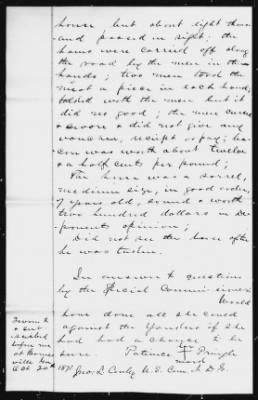 house but about eight there
and passed in sight; the
hams were carried off along
the road by the men in their
hands; two men took the
meat a piece in each hand,
talked with the men but it
did no good; the men cursed
& swore & did not give any
voucher, receipt or pay; ba-
con was worth about twelve
& a half cents per pound;
The horse was a sorrel,
medium size, in good order,
7 years old, sound & worth
two hundred dollars in De-
ponents opinion;
Did not see the horse after
he was taken.
In answer to question
by the Special Commissioner
Would
have done all she could
against the Yankees if she
had had a chance to be
sure.
Patience her X mark Pringle
Sworn to
& sub-
scribed
before me
at
ville
Oct 20th
1871
U.S. Com.